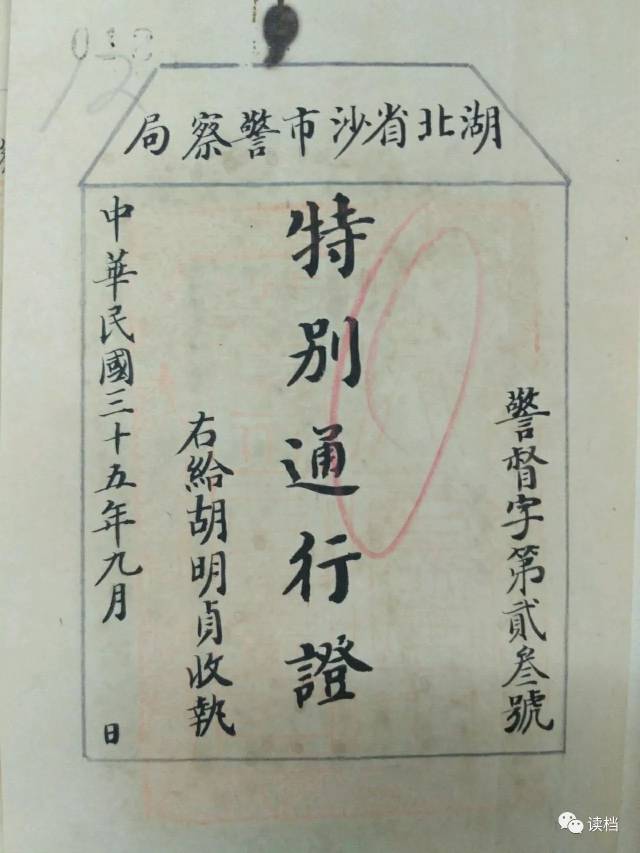 湖北省沙市警察局
警督字第貳叁號
特別通行證
右給胡明貞收執
中華民國三十五年九月 日
读档